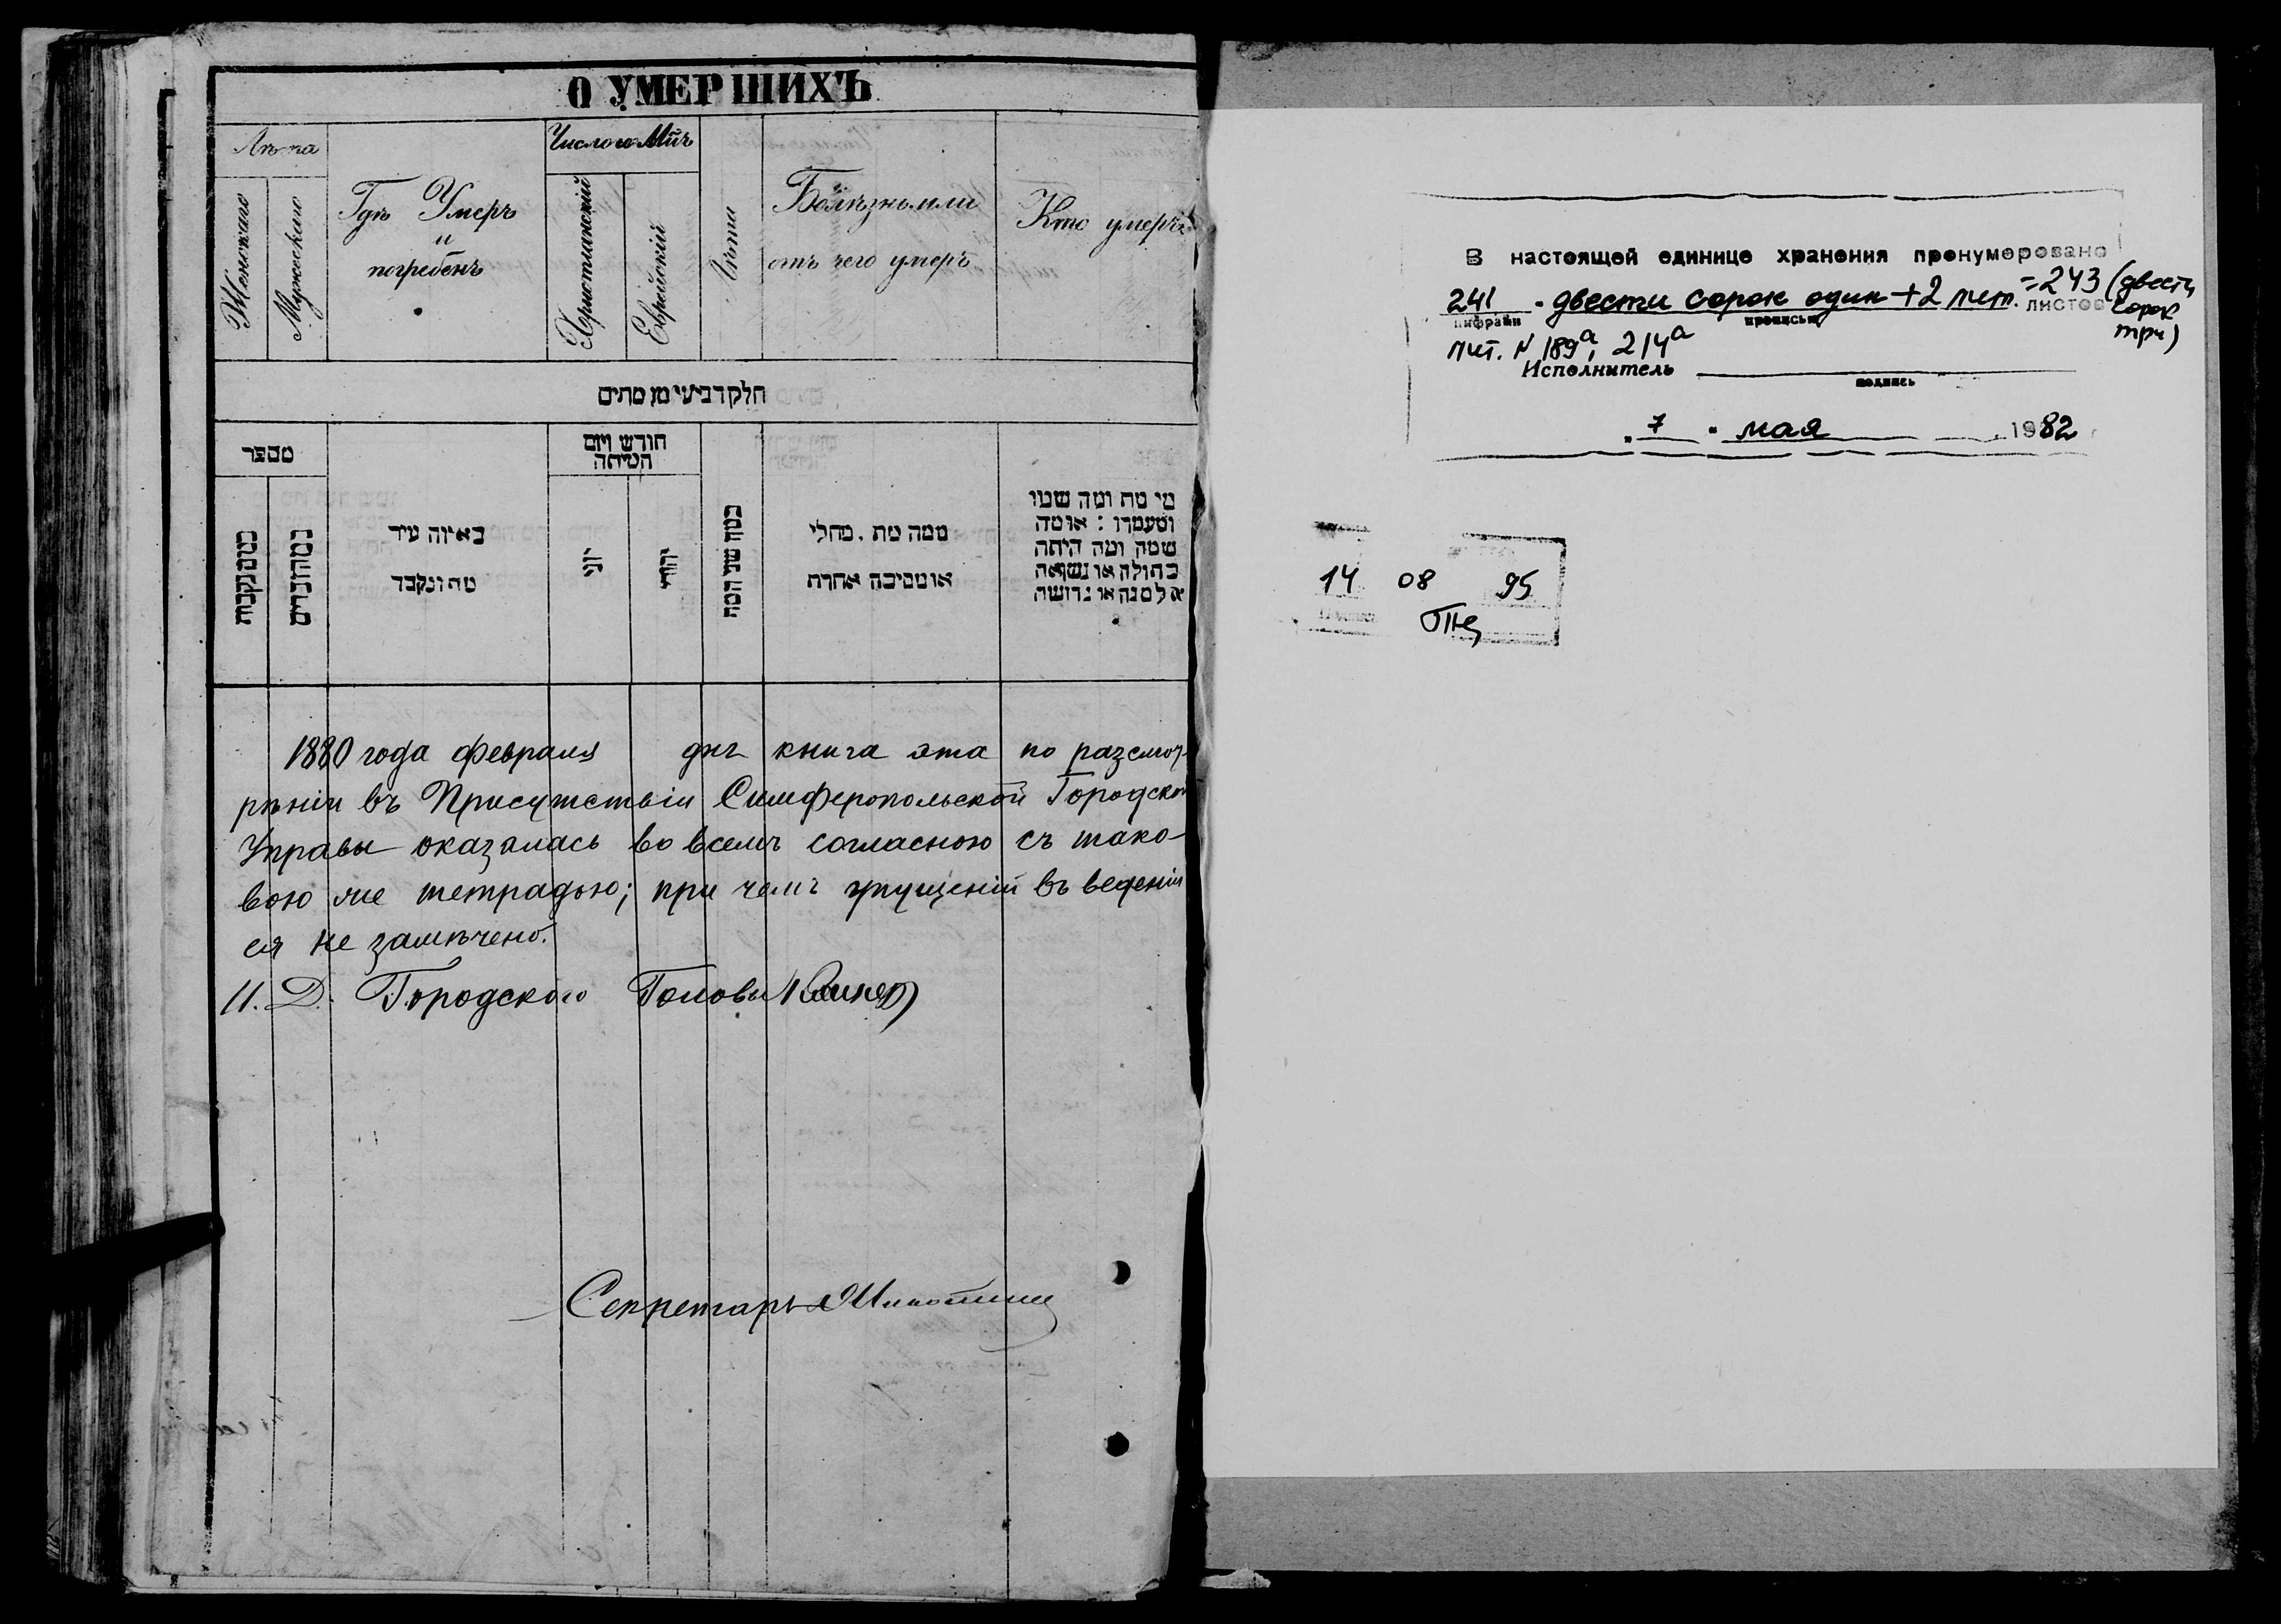 О УМЕРШИХЪ
Лѣта
Женскаго
Мужескаго
Гдѣ Умеръ
и
погребенъ
Число и Мѣц.
Христианскій
Еврейскій
Лѣта
Болѣзнь или
отъ чего умеръ
Кто умеръ
חלק רביעי מן מתים
מספר
חודש ויום
המיתה
באיזה עיר
מת ונקבר
יוני
יהודי
ממה מת . מחלי
או מסיבה אחרת
מי מת ומה שמו
ומעמדו : או מה
שמה ומה היתה
בתולה או נשואה
אלמנה או גרושה
1880 года февраля дня книга эта по разсмот-
рѣніи въ Присутствіи Симферопольской Городской
Управы оказалась во всемъ согласною съ тако-
вою же тетрадью; при чемъ упущеній въ веденіи
ея не замѣчено.
И. Д. Городского Головы
Секретарь
В настоящей единице хранения пронумеровано
241 двести сорок один + 2 лит. = 243 (двести
листов сорок
цифрами прописью три)
лит. N 189а, 214а
Исполнитель
подпись
" 7 " мая 1982
14 08 95